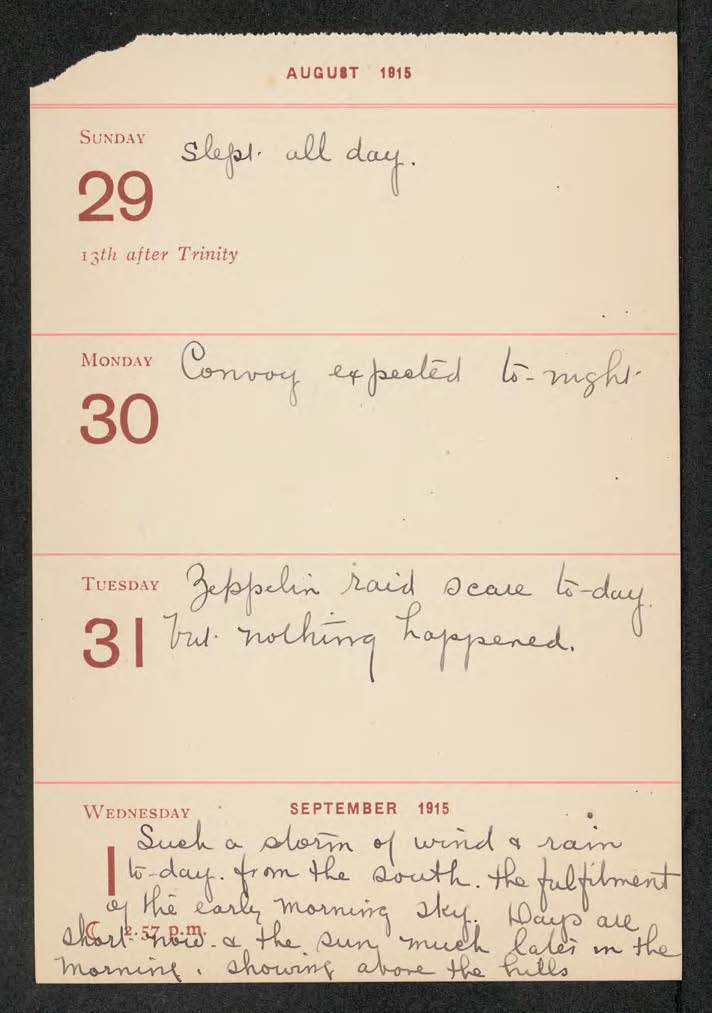 AUGUST 1915
SUNDAY
Slept all day.
29
13th after Trinity
MONDAY
Convoy expected to-night
30
TUESDAY
Zeppelin raid scare to-day.
31
but nothing happened.
WEDNESDAY
SEPTEMBER 1915
Such a storm of wind & rain
1
to-day. from the south. the fulfilment
of the early morning sky. Days are
☾ 2.57 p.m.
short now. & the sun much later in the
morning. showing above the hills